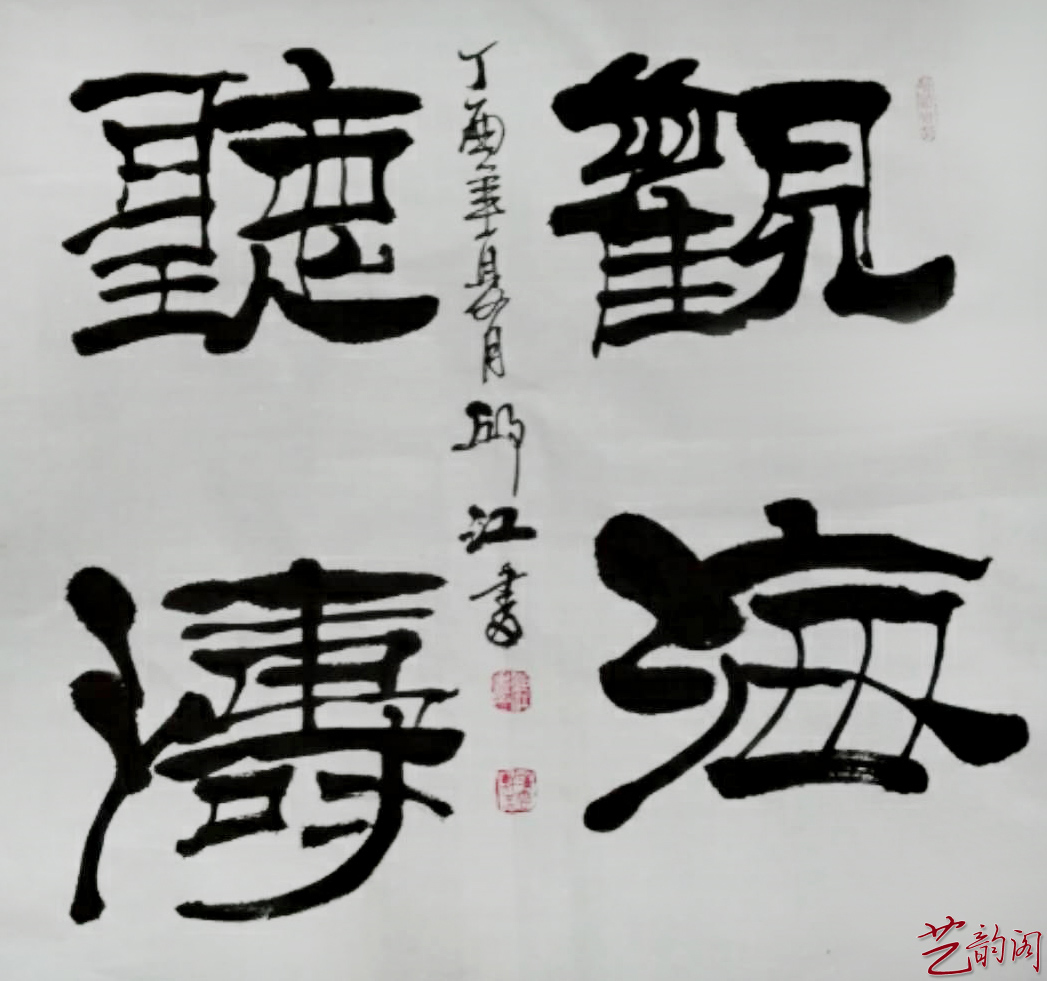 觀海
聽濤
丁酉年夏月邱江書
艺韵阁